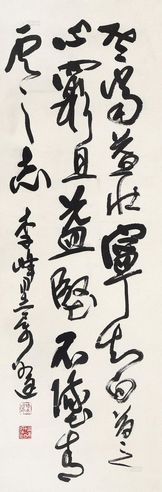 老當益壯寧知白首之
心窮且益堅不墜青
雲之志 李